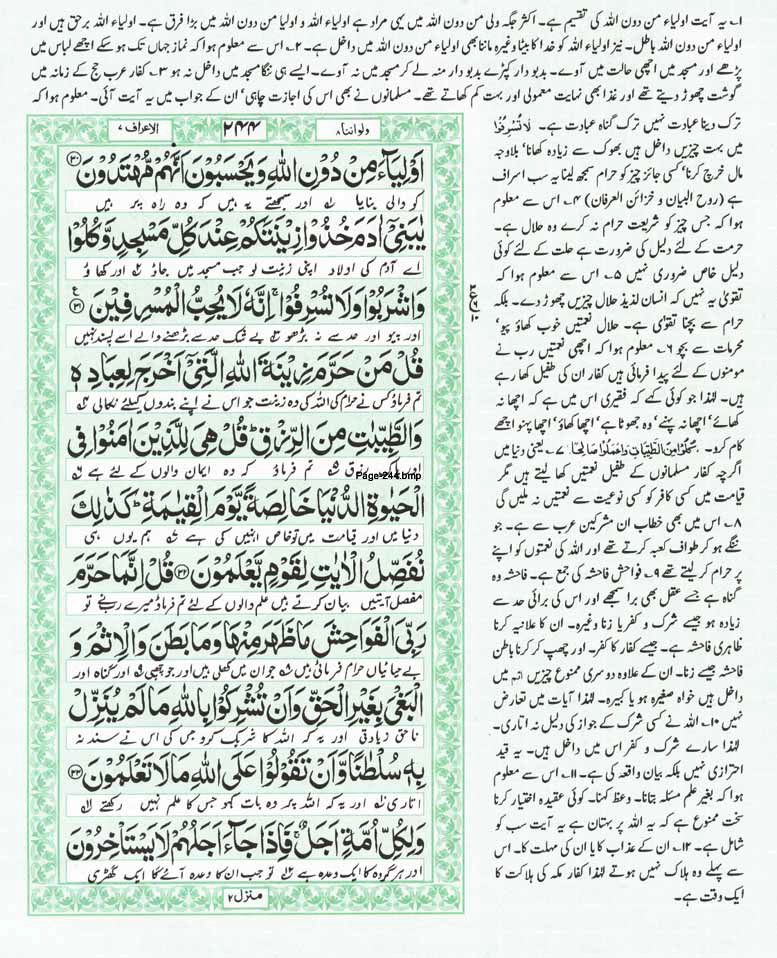 ۱۔ یہ آیت اولیاء من دون اللہ کی تقسیم ہے۔ اکثر جگہ ولی من دون اللہ میں یہی مراد ہے اولیاء اللہ و اولیا من دون اللہ میں بڑا فرق ہے۔ اولیاء اللہ برحق ہیں اور
اولیاء من دون اللہ باطل۔ نیز اولیاء اللہ کو خدا کا بیٹا وغیرہ ماننا بھی اولیاء من دون اللہ میں داخل ہے۔ ۲۔ اس سے معلوم ہوا کہ نماز جہاں تک ہو سکے اچھے لباس میں
پڑھے اور مسجد میں اچھی حالت میں آوے۔ بدبو دار کپڑے بدبو دار منہ لے کر مسجد میں نہ آوے۔ ایسے ہی ننگا مسجد میں داخل نہ ہو ۳۔ کفار عرب حج کے زمانہ میں
گوشت چھوڑ دیتے تھے اور غذا بھی نہایت معمولی اور بہت کم کھاتے تھے۔ مسلمانوں نے بھی اس کی اجازت چاہی، ان کے جواب میں یہ آیت آئی۔ معلوم ہوا کہ
ترک دینا عبادت نہیں ترک گناہ عبادت ہے۔ لَا تُسْرِفُوْا
میں بہت چیزیں داخل ہیں بھوک سے زیادہ کھانا، بلاوجہ
مال خرچ کرنا، کسی جائز چیز کو حرام سمجھ لینا یہ سب اسراف
ہے (روح البیان و خزائن العرفان) ۴۔ اس سے معلوم
ہوا کہ جس چیز کو شریعت حرام نہ کرے وہ حلال ہے۔
حرمت کے لئے دلیل کی ضرورت ہے حلت کے لئے کوئی
دلیل خاص ضروری نہیں ۵۔ اس سے معلوم ہوا کہ
تقویٰ یہ نہیں کہ انسان لذیذ حلال چیزیں چھوڑ دے۔ بلکہ
حرام سے بچنا تقویٰ ہے۔ حلال نعمتیں خوب کھاؤ پیو،
محرمات سے بچو ۶۔ معلوم ہوا کہ اچھی نعمتیں رب نے
مومنوں کے لئے پیدا فرمائی ہیں کفار ان کی طفیل کھا رہے
ہیں۔ لہٰذا جو کوئی کہے کہ فقیری اس میں ہے کہ اچھا نہ
کھائے، اچھا نہ پہنے، وہ جھوٹا ہے، اچھا کھاؤ، اچھا پہنو اچھے
کام کرو۔ كُلُوْا مِنَ الطَّيِّبَاتِ وَاعْمَلُوْا صَالِحًا ۷۔ یعنی دنیا میں
اگرچہ کفار مسلمانوں کے طفیل نعمتیں کھا لیتے ہیں مگر
قیامت میں کسی کافر کو کسی نوعیت سے نعمتیں نہ ملیں گی
۸۔ اس میں بھی خطاب ان مشرکین عرب سے ہے۔ جو
ننگے ہو کر طواف کعبہ کرتے تھے اور اللہ کی نعمتوں کو اپنے
پر حرام کر لیتے تھے ۹۔ فواحش فاحشہ کی جمع ہے۔ فاحشہ وہ
گناہ ہے جسے عقل بھی برا سمجھے اور اس کی برائی حد سے
زیادہ ہو جیسے شرک و کفر یا زنا وغیرہ۔ ان کا علانیہ کرنا
ظاہری فاحشہ ہے۔ جیسے کفار کا کفر۔ اور چھپ کر کرنا باطن
فاحشہ جیسے زنا۔ ان کے علاوہ دوسری ممنوع چیزیں اثم میں
داخل ہیں خواہ صغیرہ ہو یا کبیرہ۔ لہٰذا آیات میں تعارض
نہیں ۱۰۔ اللہ نے کسی شرک کے جواز کی دلیل نہ اتاری۔
لہٰذا سارے شرک و کفر اس میں داخل ہیں۔ یہ قید
احترازی نہیں بلکہ بیان واقعہ کی ہے۔ ۱۱۔ اس سے معلوم
ہوا کہ بغیر علم مسئلہ بتانا۔ وعظ کہنا۔ کوئی عقیدہ اختیار کرنا
سخت ممنوع ہے کہ یہ اللہ پر بہتان ہے یہ آیت سب کو
شامل ہے۔ ۱۲۔ ان کے عذاب کا یا ان کی مہلت کا۔ اس
سے پہلے وہ ہلاک نہیں ہوتے لہٰذا کفار مکہ کی ہلاکت کا
ایک وقت ہے۔
ولواننا ۸ ۲۴۴ الاعراف ۷
اَوْلِيَآءَ مِنْ دُوْنِ اللّٰهِ وَيَحْسَبُوْنَ اَنَّهُمْ مُّهْتَدُوْنَ ۳۰
کو والی بنایا اور سمجھتے یہ ہیں کہ وہ راہ پر ہیں
يٰبَنِيْٓ اٰدَمَ خُذُوْا زِيْنَتَكُمْ عِنْدَ كُلِّ مَسْجِدٍ وَّكُلُوْا
اے آدم کی اولاد اپنی زینت لو جب مسجد میں جاؤ اور کھاؤ
وَاشْرَبُوْا وَلَا تُسْرِفُوْا ۚ اِنَّهٗ لَا يُحِبُّ الْمُسْرِفِيْنَ ۳۱
اور پیو اور حد سے نہ بڑھو بے شک حد سے بڑھنے والے اسے پسند نہیں
قُلْ مَنْ حَرَّمَ زِيْنَةَ اللّٰهِ الَّتِيْٓ اَخْرَجَ لِعِبَادِهٖ
تم فرماؤ کس نے حرام کی اللہ کی وہ زینت جو اس نے اپنے بندوں کیلئے نکالی
وَالطَّيِّبٰتِ مِنَ الرِّزْقِ ؕ قُلْ هِيَ لِلَّذِيْنَ اٰمَنُوْا فِي
اور پاک رزق تم فرماؤ کہ وہ ایمان والوں کے لئے ہے
Page-244.bmp
الْحَيٰوةِ الدُّنْيَا خَالِصَةً يَّوْمَ الْقِيٰمَةِ ؕ كَذٰلِكَ
دنیا میں اور قیامت میں تو خاص انہیں کی ہے ہم یوں ہی
نُفَصِّلُ الْاٰيٰتِ لِقَوْمٍ يَّعْلَمُوْنَ ۳۲ قُلْ اِنَّمَا حَرَّمَ
مفصل آیتیں بیان کرتے ہیں علم والوں کے لئے تم فرماؤ میرے رب نے تو
رَبِّيَ الْفَوَاحِشَ مَا ظَهَرَ مِنْهَا وَمَا بَطَنَ وَالْاِثْمَ وَ
بے حیائیاں حرام فرمائی ہیں جو ان میں کھلی ہیں اور جو چھپی اور گناہ اور
الْبَغْيَ بِغَيْرِ الْحَقِّ وَاَنْ تُشْرِكُوْا بِاللّٰهِ مَا لَمْ يُنَزِّلْ
ناحق زیادتی اور یہ کہ اللہ کا شریک کرو جس کی اس نے سند نہ
بِهٖ سُلْطٰنًا وَّاَنْ تَقُوْلُوْا عَلَى اللّٰهِ مَا لَا تَعْلَمُوْنَ ۳۳
اتاری اور یہ کہ اللہ پر وہ بات کہو جس کا علم نہیں رکھتے
وَلِكُلِّ اُمَّةٍ اَجَلٌ ۚ فَاِذَا جَآءَ اَجَلُهُمْ لَا يَسْتَاْخِرُوْنَ
اور ہر گروہ کا ایک وعدہ ہے تو جب ان کا وعدہ آئے گا ایک گھڑی
منزل ۲